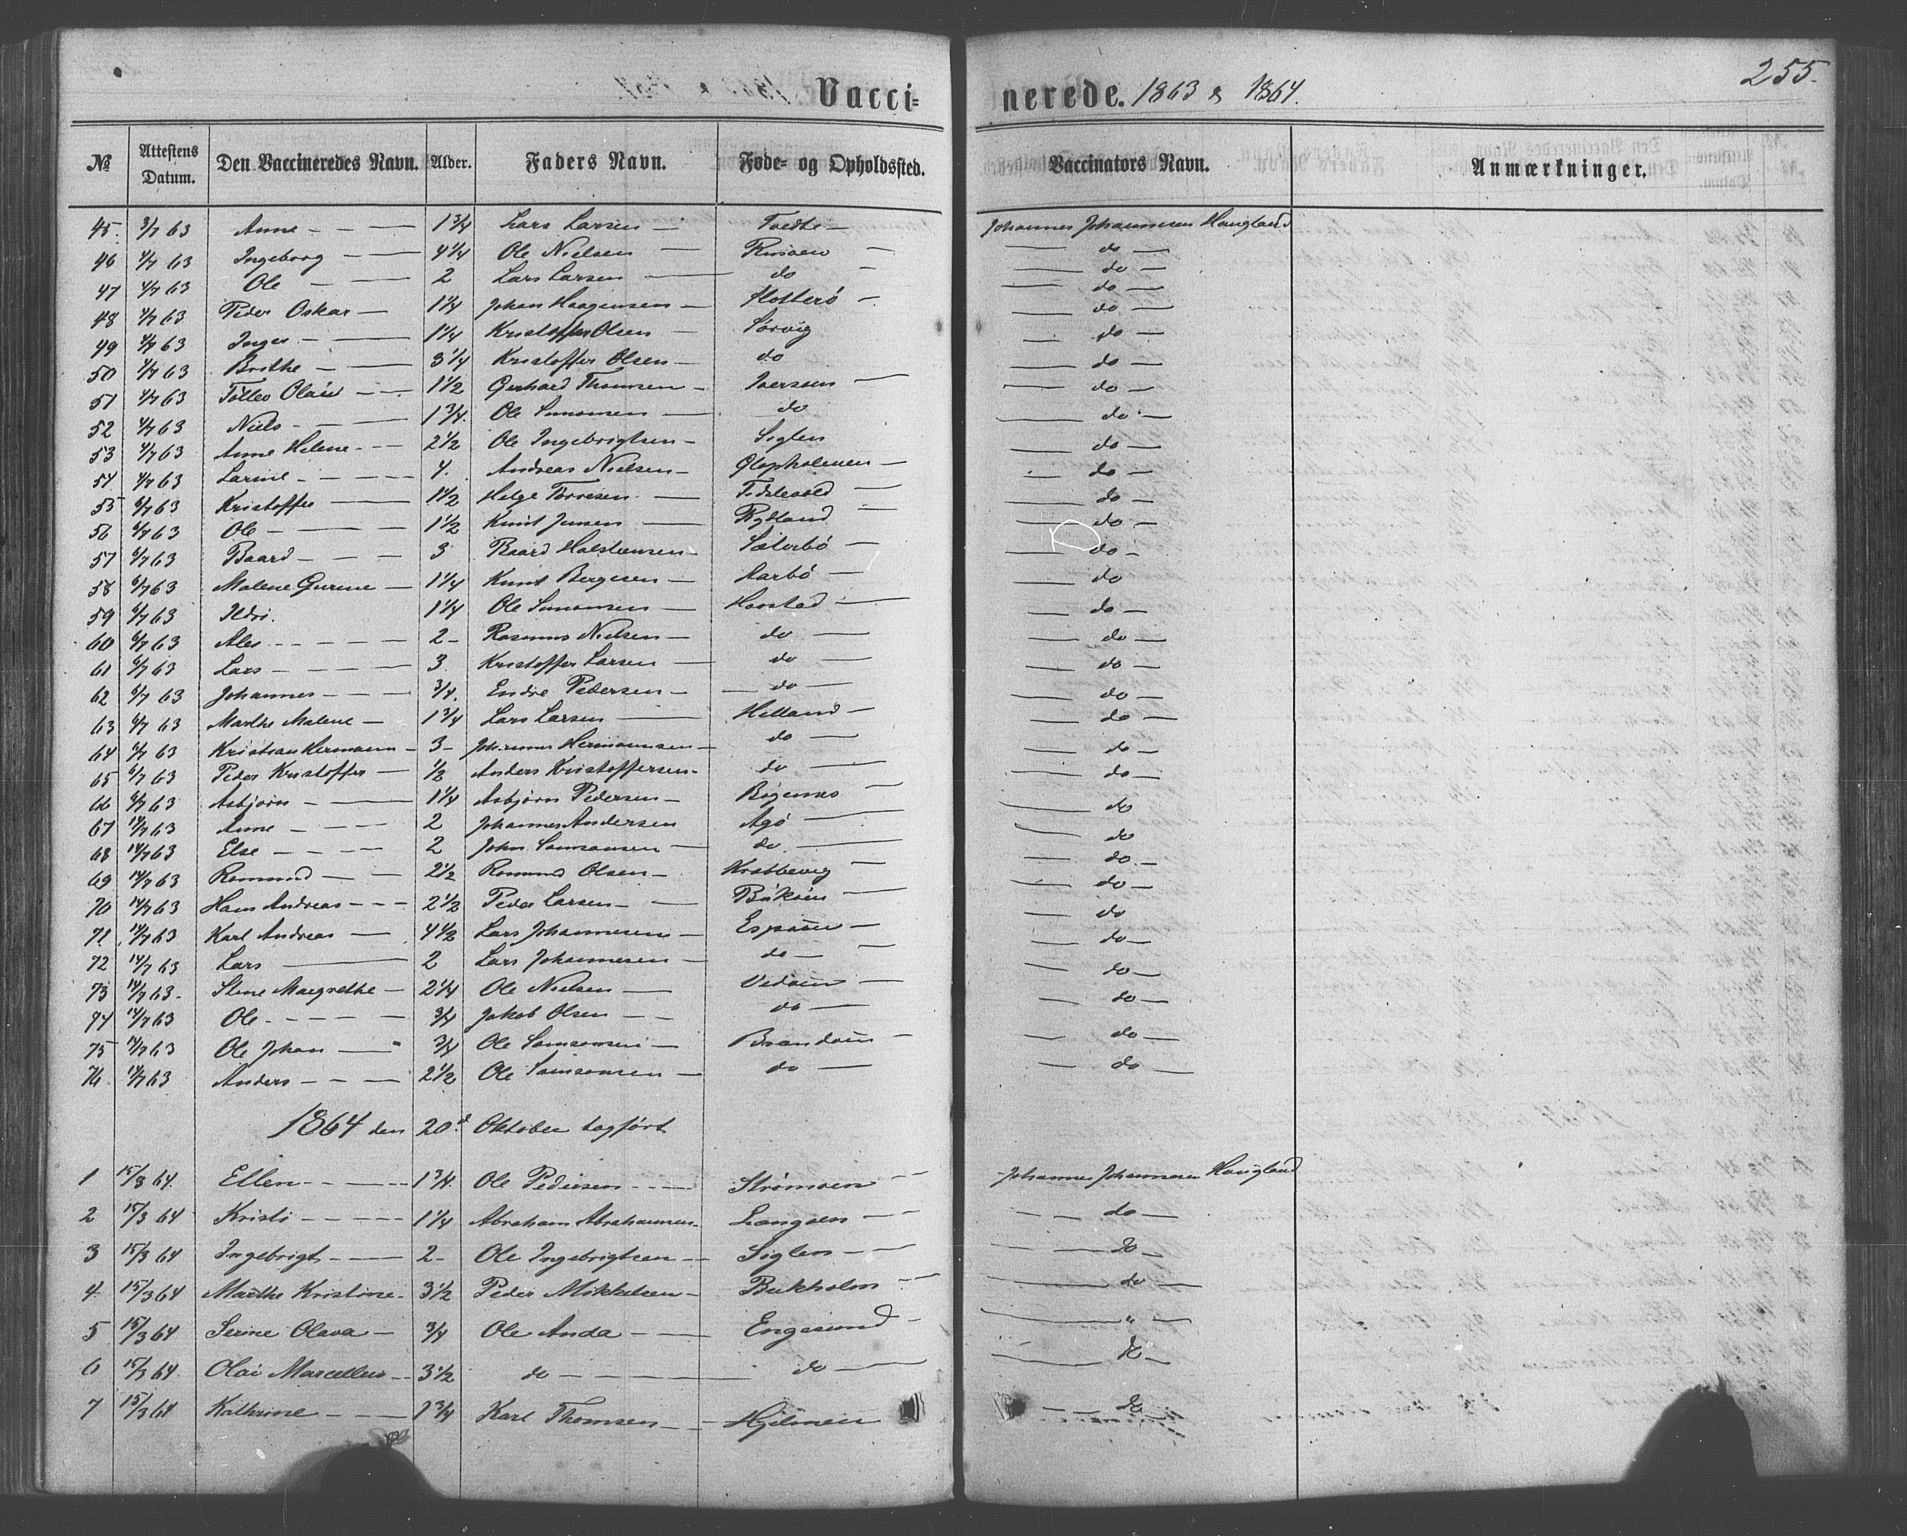 255.
Vaccinerede. 1863 & 1864.
№ Attestens Datum. Den Vaccineredes Navn. Alder. Faders Navn. Føde- og Opholdssted. Vaccinators Navn. Anmærkninger.
45. 3/7 63 Anne 1 3/4 Lars Larsen Johannes Johannesen Haugland
46 4/7 63 Ingeborg 4 1/4 Ole Nielsen do
47 4/7 63 Ole 2 Lars Larsen do do
48 4/7 63 Peder Oskar 1 1/4 Johan Haagensen do
49 4/7 63 Inger 1 1/4 Kristoffer Olsen Sørvig do
50 4/7 63 Brithe 3 1/4 Kristoffer Olsen do do
51 4/7 63 1 1/2 Gerhard Thomsen Iversen do
52 4/7 63 Niels 1 3/4 Ole Simonsen do do
53 4/7 63 Anne Helene 2 1/2 Ole Ingebrigtsen Siglen do
54 4/7 63 Larine 4. Andreas Nielsen do
55 6/7 63 Kristoffer 1 1/2 Helge Torresen do
56 6/7 63 Ole 1 1/2 Knut Jensen Rydland do
57 6/7 63 Baard 3 Baard Halsteensen Sæterbø do
58 6/7 63 Malene Gurine 1 1/4 Knut Bergesen Aarbø do
59 6/7 63 Ildri. 1 1/4 Ole Simonsen Haastad do
60 6/7 63 Ales 2 Rasmus Nielsen do do
61 6/7 63 Lars 3. Kristoffer Larsen do do
62 6/7 63 Johannes 3/4. Endre Pedersen do do
63 6/7 63 Marthe Malene 1 3/4 Lars Larsen Helland do
64 6/7 63 Kristian Hermann 3 Johannes Hermannsen do do
65 6/7 63 Peder Kristoffer 1/2 Anders Kristoffersen do do
66 6/7 63 Asbjørn 1 1/4 Asbjørn Pedersen Bøgenes do
67 14/7 63 Anne 2 Johannes Andersen Agø do
68 14/7 63 Else 2 John Samsonsen do do
69 14/7 63 Romund 2 1/2 Romund Olsen Krabbevig do
70 14/7 63 Hans Andreas 2 1/2 Peder Larsen do
71 14/7 63 Karl Andreas 4 1/2 Lars Johannesen do
72 14/7 63 Lars 2 Lars Johannesen do do
73 14/7 63 Stine Margrethe 2 1/4 Ole Nielsen Vedøen do
74 14/7 63 Ole 3/4 Jakob Olsen do do
75 14/7 63 Ole Johan 3/4 Ole Samsonsen do
76 14/7 63 Anders 2 1/2 Ole Samsonsen do do
1864 den 20d Oktober
1 15/3 64. Ellen 1 3/4. Ole Pedersen Strømøen Johannes Johannesen Haugland
2 15/3 64 Kristi 1 1/4 Abraham Abrahamsen Langøen do
3 15/3 64 Ingebrigt 2 Ole Ingebrigtsen Siglen do
4 15/3 64 Marthe Kristine 3 1/2 Peder Mikkelsen Bukholm do
5 15/3 64 Serine Olava 3/4 Ole Anda Engesund "
6 15/3 64 Olai Marcellus 3 1/2 do do do
7 15/3 64 Kathrine 1 3/4 Karl Thomsen Hjelmen do